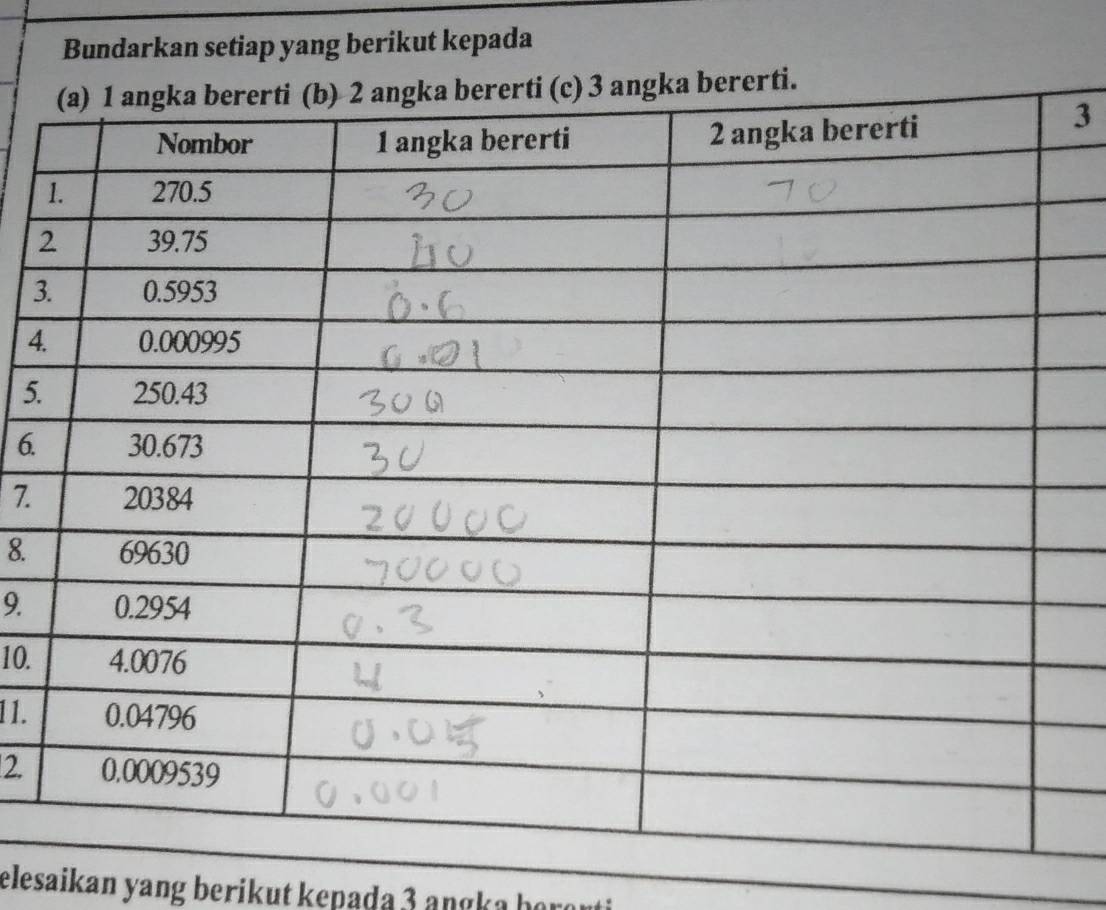 Bundarkan setiap yang berikut kepada
(a) 1 angka bererti (b) 2 angka bererti (c) 3 angka bererti.
Nombor 1 angka bererti 2 angka bererti 3
1. 270.5 30 70
2 39.75 40
3. 0.5953 0.6
4. 0.000995 0.01
5. 250.43 300
6. 30.673 30
7. 20384 20000
8. 69630 70000
9. 0.2954 0.3
10. 4.0076 4
11. 0.04796 0.05
2. 0.0009539 0.001
elesaikan yang berikut kepada 3 angka bererti